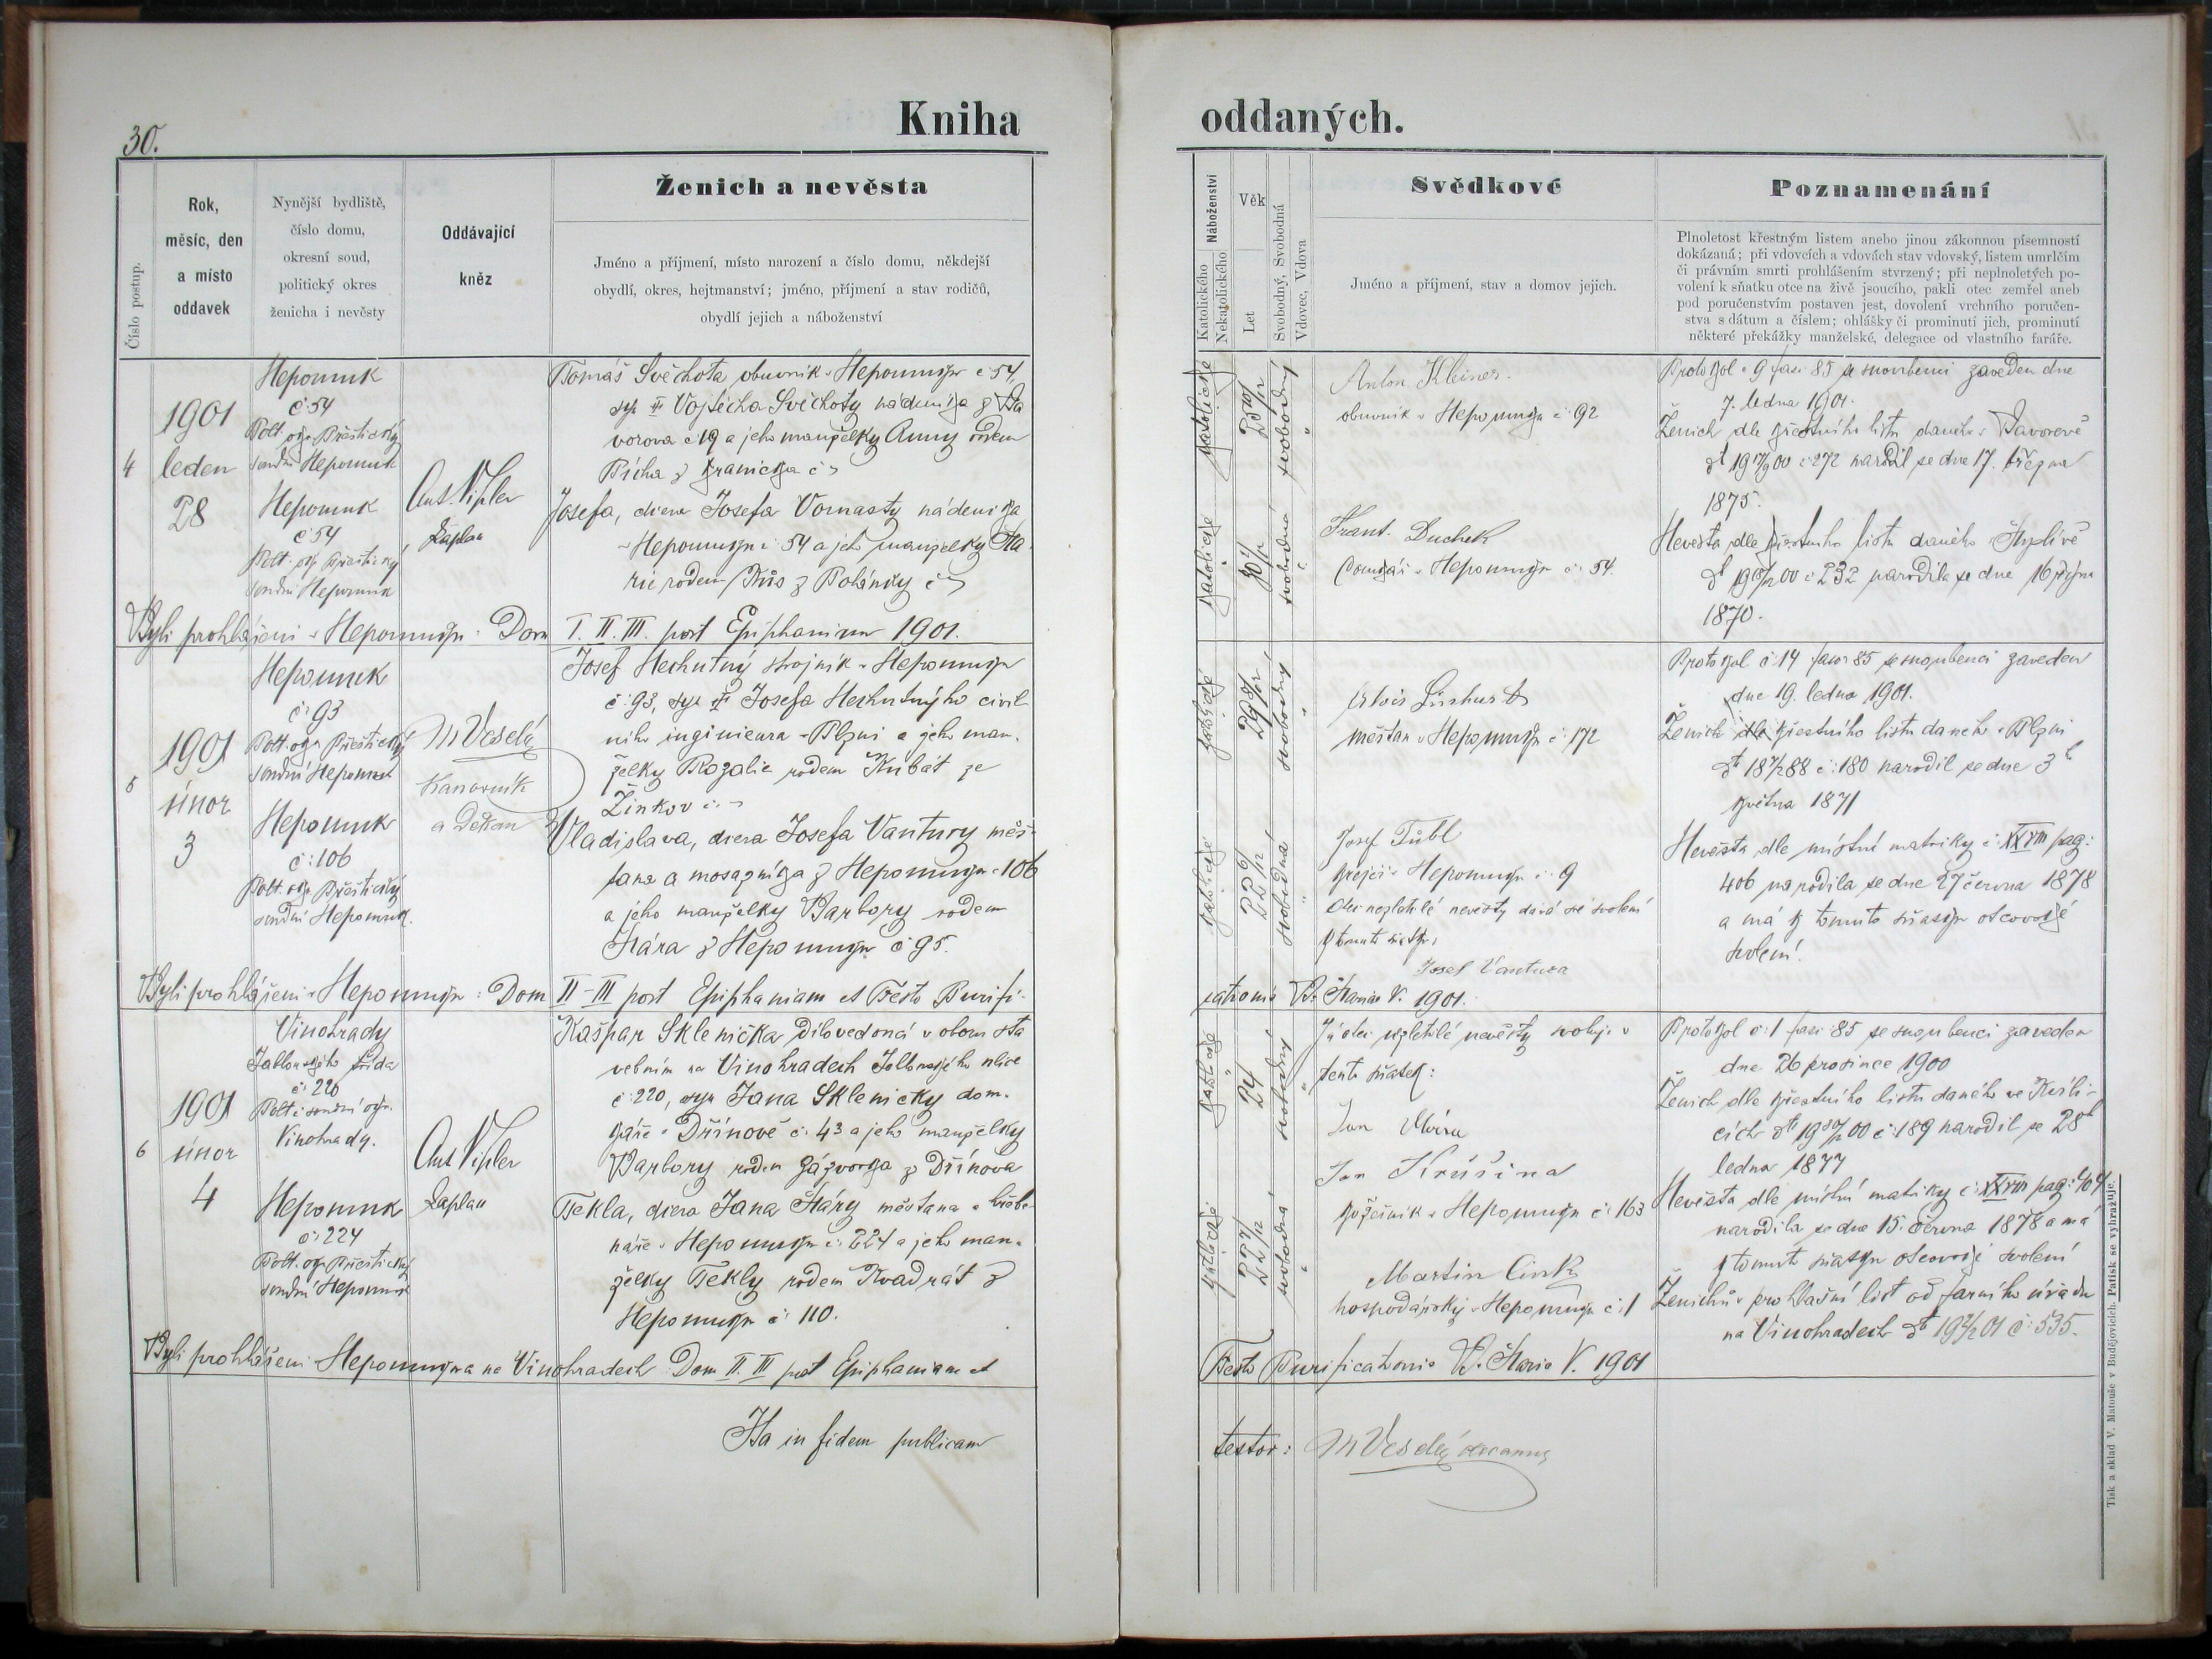 30.
Kniha
oddaných.
Číslo postup.
Rok,
měsíc, den
a místo
oddavek
Nynější bydliště,
číslo domu,
okresní soud,
politický okres
ženicha i nevěsty
Oddávající
kněz
Ženich a nevěsta
Jméno a příjmení, místo narození a číslo domu, někdejší
obydlí, okres, hejtmanství; jméno, příjmení a stav rodičů,
obydlí jejich a náboženství
Náboženství
Katolického
Nekatolického
Věk
Let
Svobodný, Svobodná
Vdovec, Vdova
Svědkové
Jméno a příjmení, stav a domov jejich.
Poznamenání
Plnoletost křestným listem anebo jinou zákonnou písemností
dokázaná; při vdovcích a vdovách stav vdovský, listem umrlčím
či právním smrti prohlášením stvrzený; při neplnoletých po-
volení k sňatku otce na živě jsoucího, pakli otec zemřel aneb
pod poručenstvím postaven jest, dovolení vrchního poručen-
stva s dátum a číslem; ohlášky či prominutí jich, prominutí
některé překážky manželské, delegace od vlastního faráře.
4
1901
leden
28
Nepomuk
č 54
Polt. okr Přeštický
soudní Nepomuk
Nepomuk
č 54
Polt. okr Přeštický
soudní Nepomuk
Kaplan
Tomáš Svěchota obuvník v Nepomuku č 54,
syn Vojtěcha Svěchoty nádeníka z Ba
vorova č 19 a jeho manželky Anny rodem
Pícha z
Josefa, dcera Josefa Vomasty nádeníka
v Nepomuku č 54 a jeho manželky Ma
rie rodem z Polánky č
Byli prohlášeni v Nepomuku: Dom I. II. III. post Epiphaniam 1901.
katolické
svobodný
Anton Kleiner
obuvník v Nepomuku č 92
katolické
svobodná
Frant. Duchek
v Nepomuku č. 54.
Protokol č 9 fasc 85 se snoubenci zaveden dne
7. ledna 1901.
Ženich dle křestního listu daného v Bavorově
č 272 narodil se dne 17. března
1875.
Nevěsta dle křestního listu daného
č 232 narodila se dne 16 října
1870.
5
1901
únor
3
Nepomuk
č: 93
Polt. okr Přeštický
soudní Nepomuk
Nepomuk
č: 106
Polt okr Přeštický
soudní Nepomuk.
M Veselý
Kanovník
a Děkan
Josef Nechutný strojník v Nepomuku
č: 93, syn Josefa Nechutného civil
ního inginieura v Plzni a jeho man-
želky Rozalie rodem Kubát ze
Žinkov č: –
Vladislava, dcera Josefa Vantury měš-
ťana a mosazníka z Nepomuku č 106
a jeho manželky Barbory rodem
Hára z Nepomuku č 95.
Byli prohlášeni v Nepomuku: Dom II – III post Epiphaniam et Festo Purifi-
cationis B. Mariae V. 1901.
katolické
svobodný
Alois
měšťan v Nepomuku č: 172
katolické
svobodná
Josef Tübl
krejčí v Nepomuku č. 9
Otec nezletilé nevěsty dává své svolení
k tomuto sňatku:
Josef Vantura
Protokol č 14 fasc 85 se snoubenci zaveden
dne 19. ledna 1901.
Ženich dle křestního listu daného v Plzni
č: 180 narodil se dne 3
května 1871
Nevěsta dle místní matriky č: XXVIII pag:
406 narodila se dne 27 června 1878
a má k tomuto sňatku otcovské
svolení.
6
1901
únor
4
Vinohrady
Jablonského třída
č: 220
Polt i soudní okr.
Vinohrady.
Nepomuk
č: 224
Polt. okr Přeštický
soudní Nepomuk
Kaplan
Kašpar Sklenička dílovedoucí v oboru sta
vebním na Vinohradech Jablonského ulice
č: 220, syn Jana Skleničky dom-
káře v Dřínově č. 43 a jeho manželky
Barbory rodem Zázvorka z Dřínova
Tekla, dcera Jana Háry měšťana a hřebe-
náře v Nepomuku č: 224 a jeho man-
želky Tekly rodem Kvadrát z
Nepomuku č: 110.
Byli prohlášeni v Nepomuku a na Vinohradech: Dom II. III post Epiphaniam et
Festo Purificationis B. Mariae V. 1901
katolické
24
svobodný
Já otec nezletilé nevěsty svoluji v
tento sňatek:
Jan Hára
katolické
svobodná
Jan Krušina
kožešník v Nepomuku č: 163
Martin Cink
hospodářský v Nepomuku č: 1
Protokol č: 1 fasc: 85 se snoubenci zaveden
dne 26 prosince 1900
Ženich dle křestního listu daného ve Kvíli-
cích č: 189 narodil se 28
ledna 1877
Nevěsta dle místní matriky č: XXVIII pag: 404
narodila se dne 15. června 1878 a má
k tomuto sňatku otcovské svolení
Ženichův prohlašní list od farního úřadu
na Vinohradech č: 535.
Ita in fidem publicam
testor: M Veselý decanus
Tisk a sklad V. Matouše v Budějovicích. Patisk se vyhražuje.